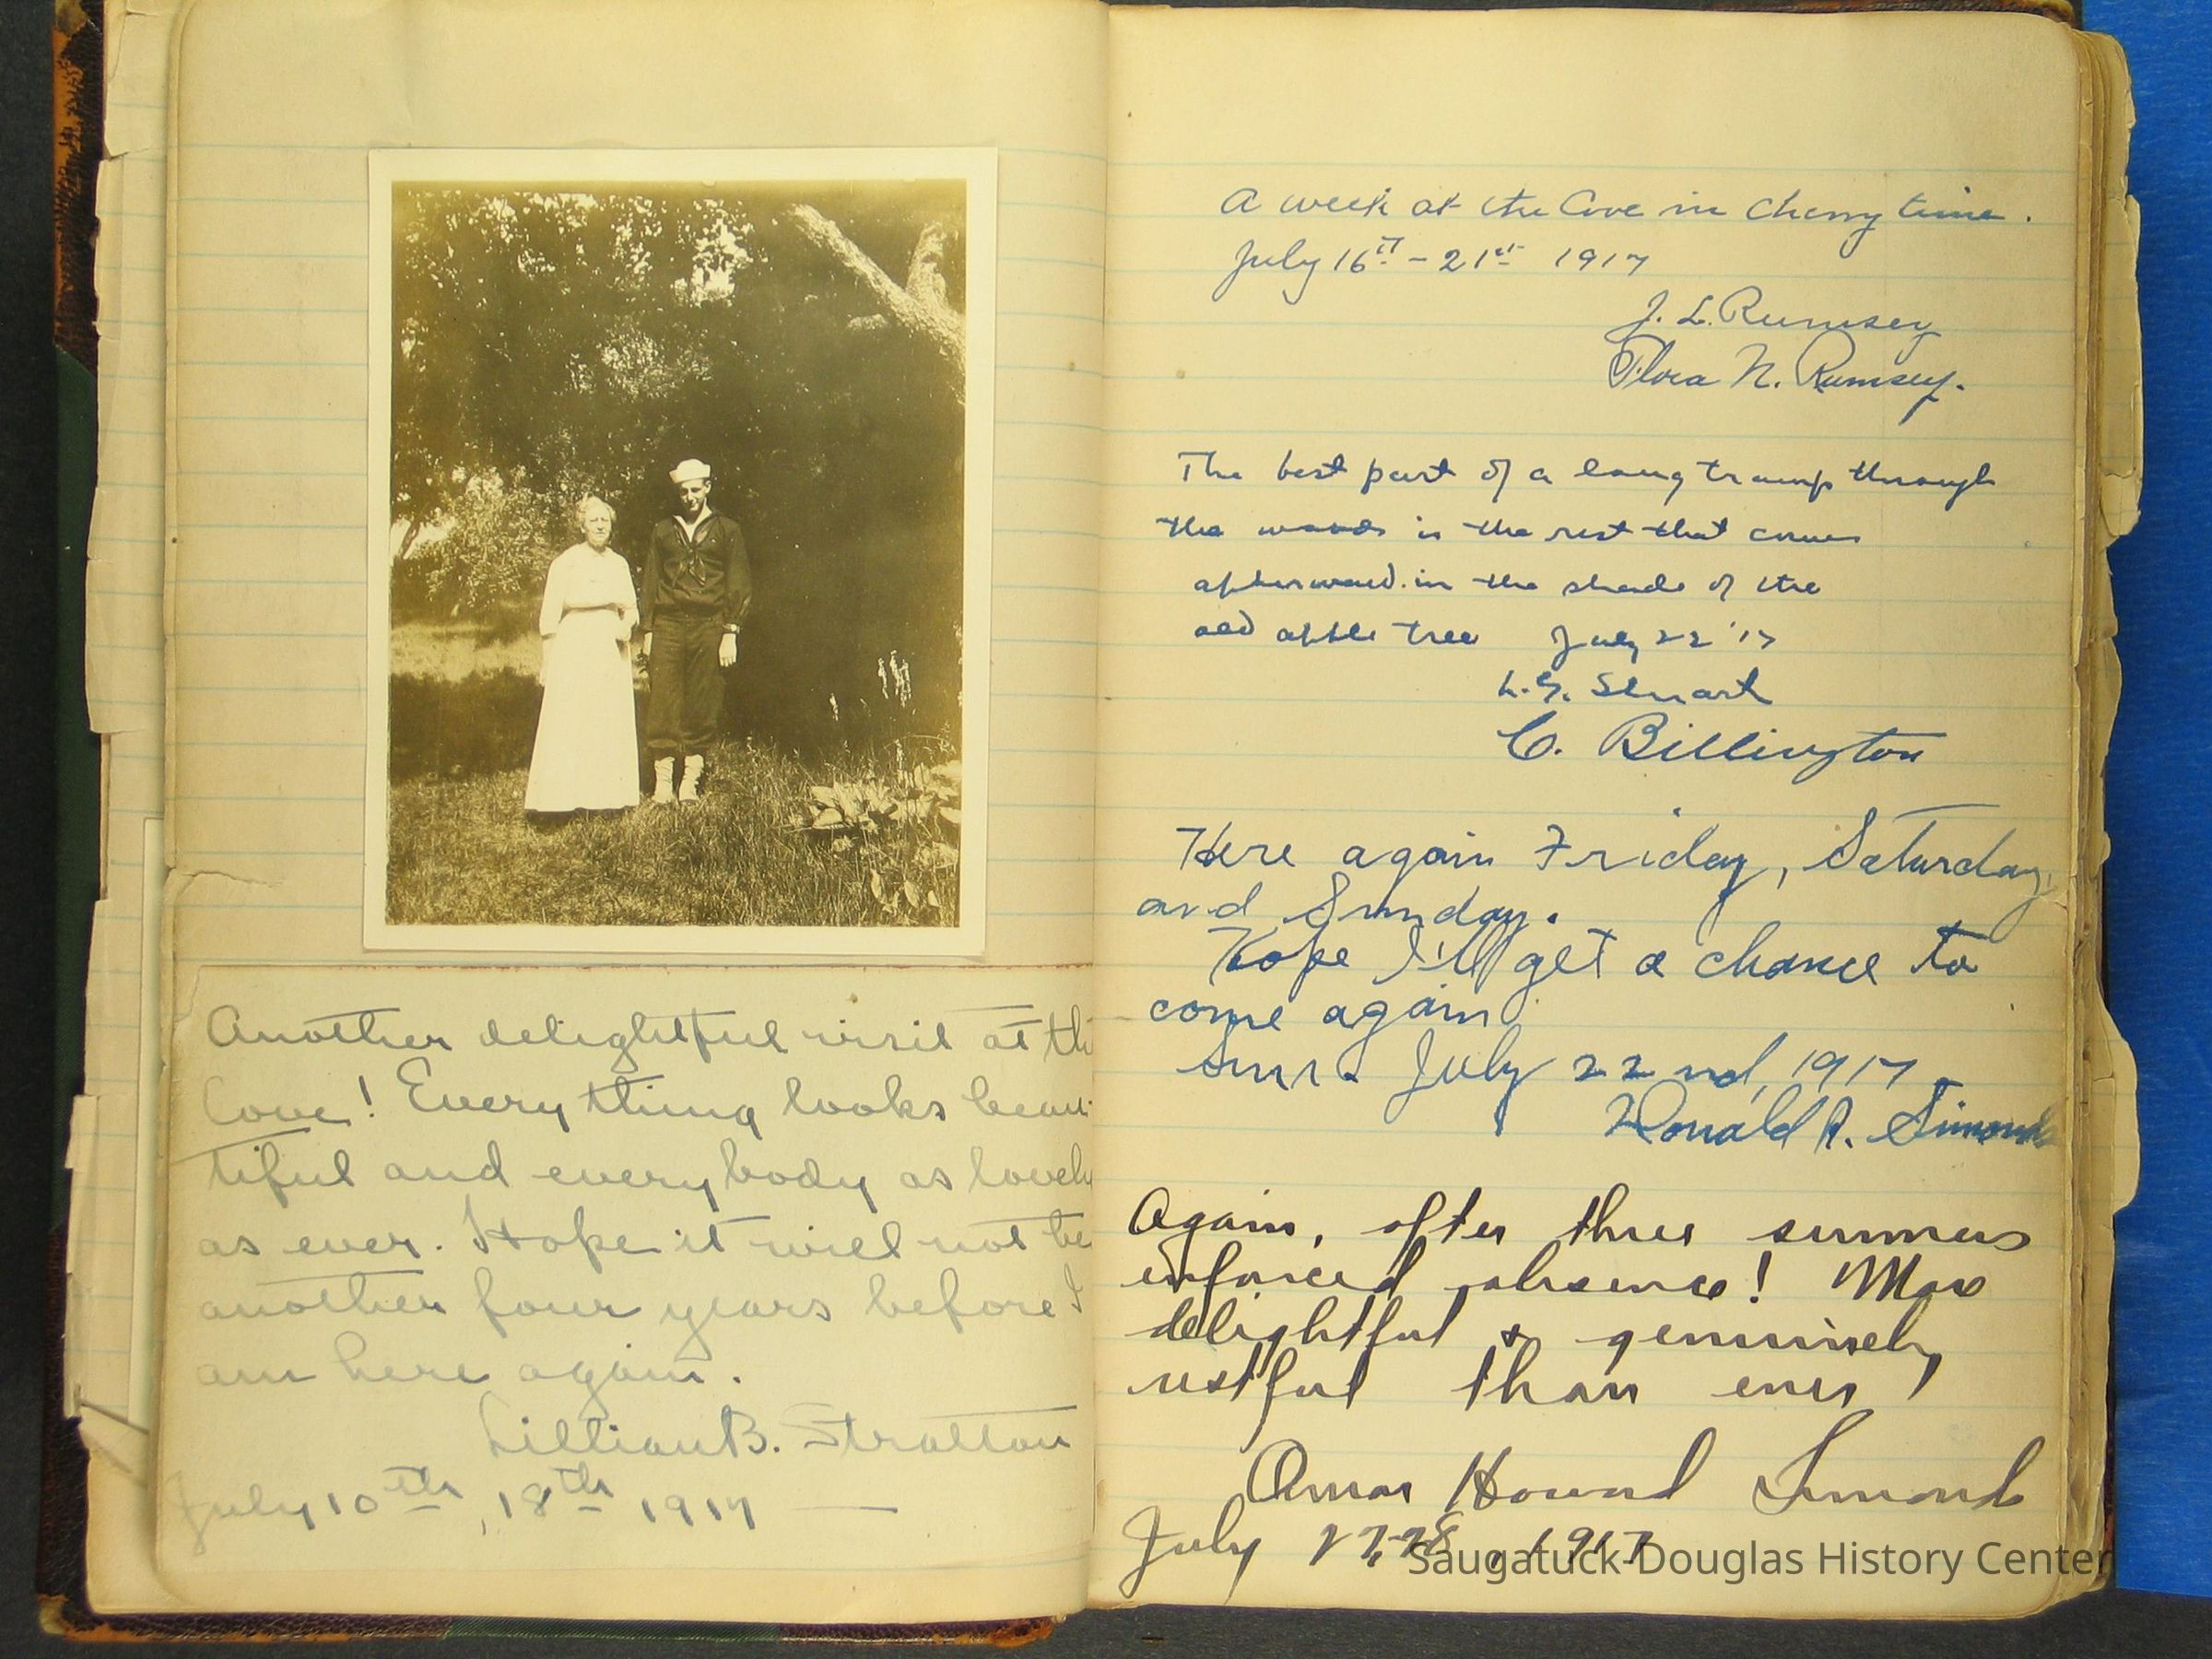 Another delightful visit at th
Cove! Everything looks beau-
tiful and everybody as lovely
as ever. Hope it will not be
another four years before I
am here again.
Lillian B. Stratton
July 10th, 18th 1917
A week at the Cove in Cherry time.
July 16th - 21st 1917
J. L. Rumsey
Flora N. Rumsey.
The best part of a long tramp through
the woods is the rest that comes
afterward in the shade of the
old apple tree July 22 '17
L. G. Stuart
C. Billington
Here again Friday, Saturday,
and Sunday.
Hope I'll get a chance to
come again
Sun. July 22nd, 1917.
Donald R. Simonds
Again, after three summers
enforced absence! More
delightful & genuinely
restful than ever!
Howard Simonds
July 27-28, 1917
Saugatuck-Douglas History Center